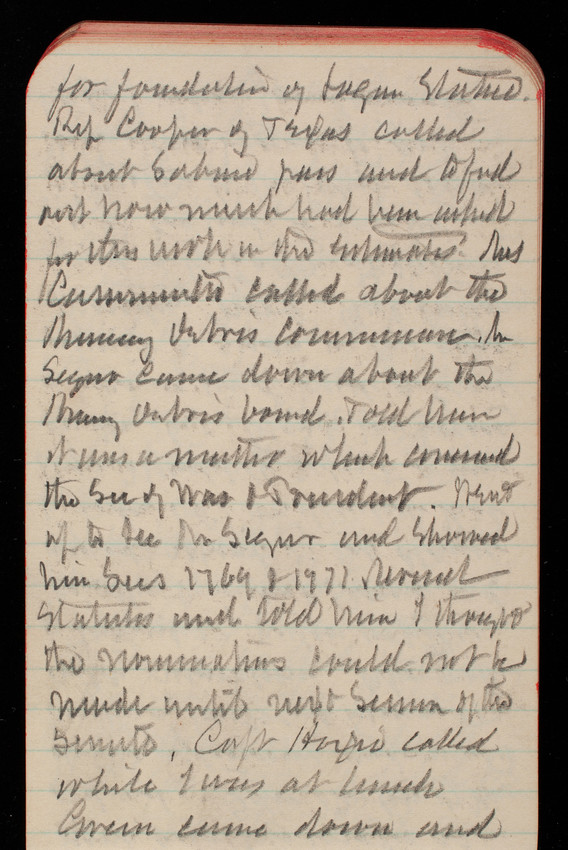 for foundation of Logan Statue.
Rep Cooper of Texas called
about Sabine pass and to find
out how much had been asked
for this work in the estimates. Mrs
called about the
Mining Debris Commission. Mr
Segur came down about the
Mining Debris board. Told him
it was a matter which concerned
the Sec of War & President. Went
up to see Mr Segur and showed
him Secs 1769 & 1771 Revised
Statutes and told him I thought
the nominations could not be
made until next Session of the
Senate. Capt called
while I was at lunch
Green came down and